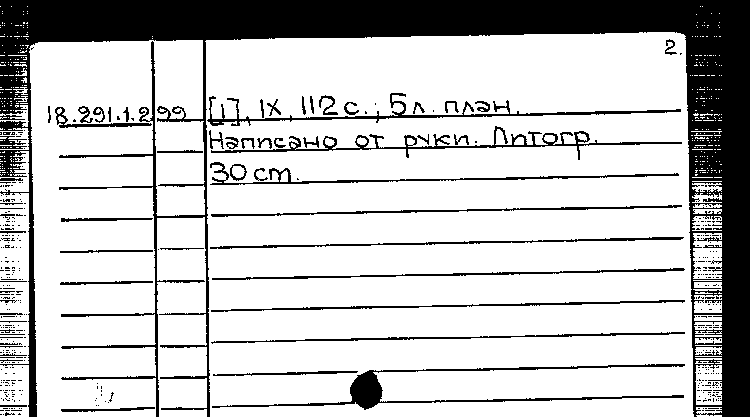 2.
18.291.1.2 99 [1], IX, 112 с.; 5 л. план.
Написано от руки. Литогр.
30 cm.